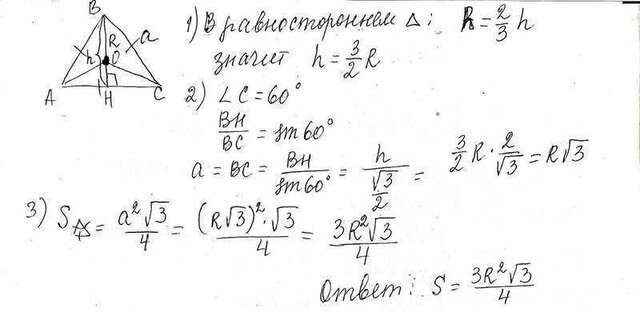 B
h
R
a
O
A
H
C
1) В равностороннем Δ: R = 2/3 h
значит h = 3/2 R
2) ∠C = 60°
BH/BC = sin 60°
a = BC = BH/sin 60° = h/(√3/2) = 3/2 R · 2/√3 = R√3
3) S△ = a²√3/4 = (R√3)²·√3/4 = 3R²√3/4
Ответ: S = 3R²√3/4